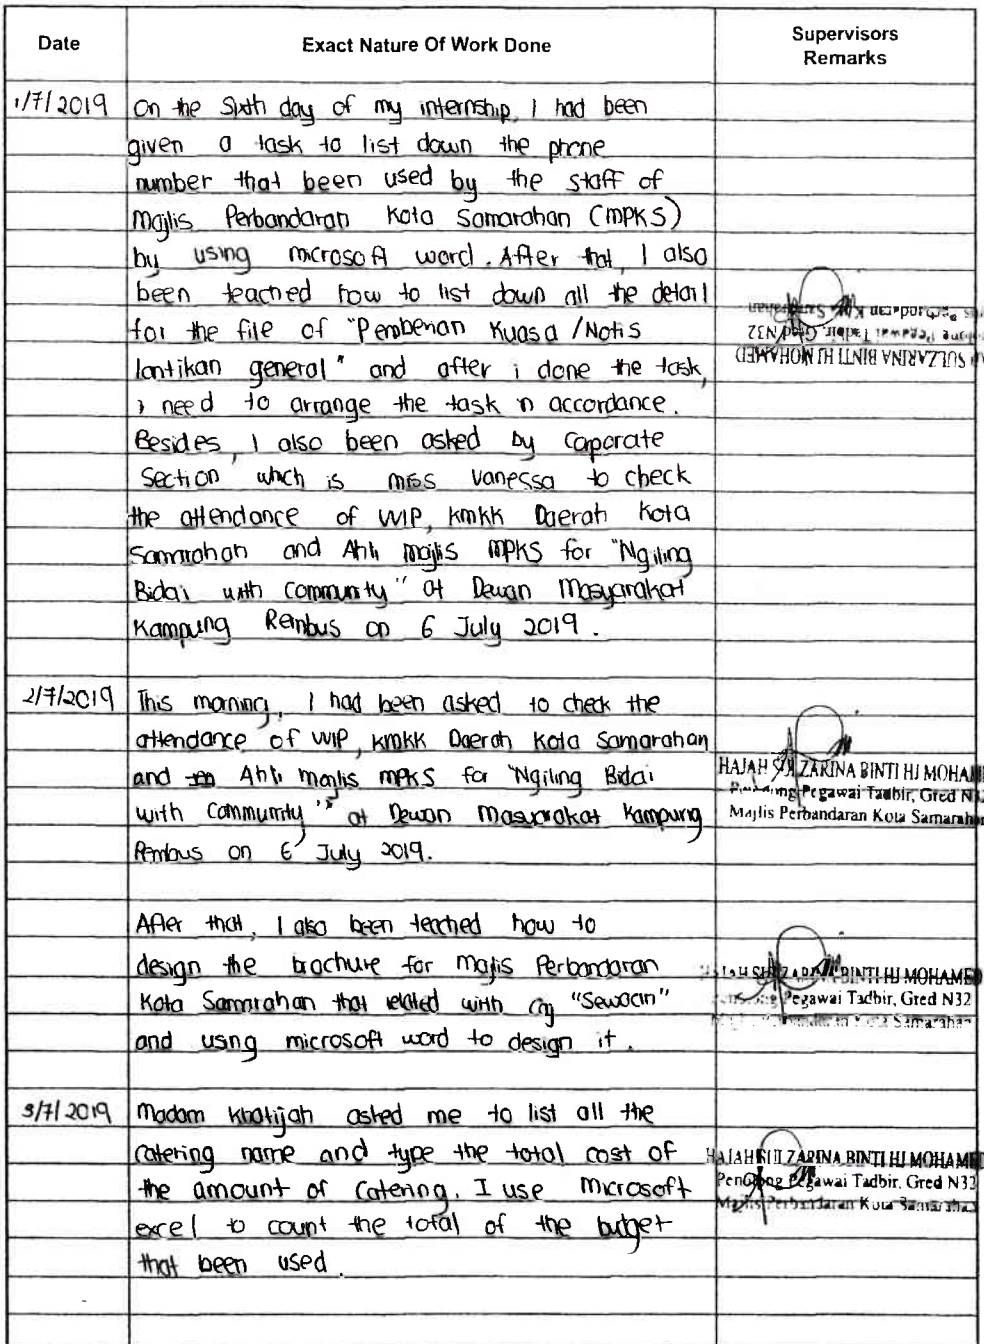 Date
Exact Nature Of Work Done
Supervisors
Remarks
1/7/2019
On the Sixth day of my internship, I had been
given a task to list down the phone
number that been used by the staff of
Majlis Perbandaran Kota Samarahan (MPKS)
by using microsoft word. After that, I also
been teached how to list down all the detail
for the file of "Pemberian Kuasa / Notis
lantikan general" and after i done the task,
i need to arrange the task in accordance.
Besides, I also been asked by Corporate
Section which is miss Vanessa to check
the attendance of VVIP, KMKK Daerah Kota
Samarahan and Ahli Majlis MPKS for "Ngiling
Bidai with Community" at Dewan Masyarakat
Kampung Rembus on 6 July 2019.
SULZARINA BINTI HJ MOHAMED
Pegawai Tadbir, Gred N32
Perbandaran Kota Samarahan
2/7/2019
This morning, I had been asked to check the
attendance of VVIP, KMKK Daerah Kota Samarahan
and Ahli Majlis MPKS for "Ngiling Bidai
with Community" at Dewan Masyarakat Kampung
Rembus on 6 July 2019.
HAJAH SULZARINA BINTI HJ MOHAMED
Penolong Pegawai Tadbir, Gred N32
Majlis Perbandaran Kota Samarahan
After that, I also been teached how to
design the brochure for Majlis Perbandaran
Kota Samarahan that related with "Sewaan"
and using microsoft word to design it.
HAJAH SULZARINA BINTI HJ MOHAMED
Penolong Pegawai Tadbir, Gred N32
Majlis Perbandaran Kota Samarahan
3/7/2019
Madam Khatijah asked me to list all the
catering name and type the total cost of
the amount of catering. I use Microsoft
excel to count the total of the budget
that been used.
HAJAH SULZARINA BINTI HJ MOHAMED
Penolong Pegawai Tadbir, Gred N32
Majlis Perbandaran Kota Samarahan